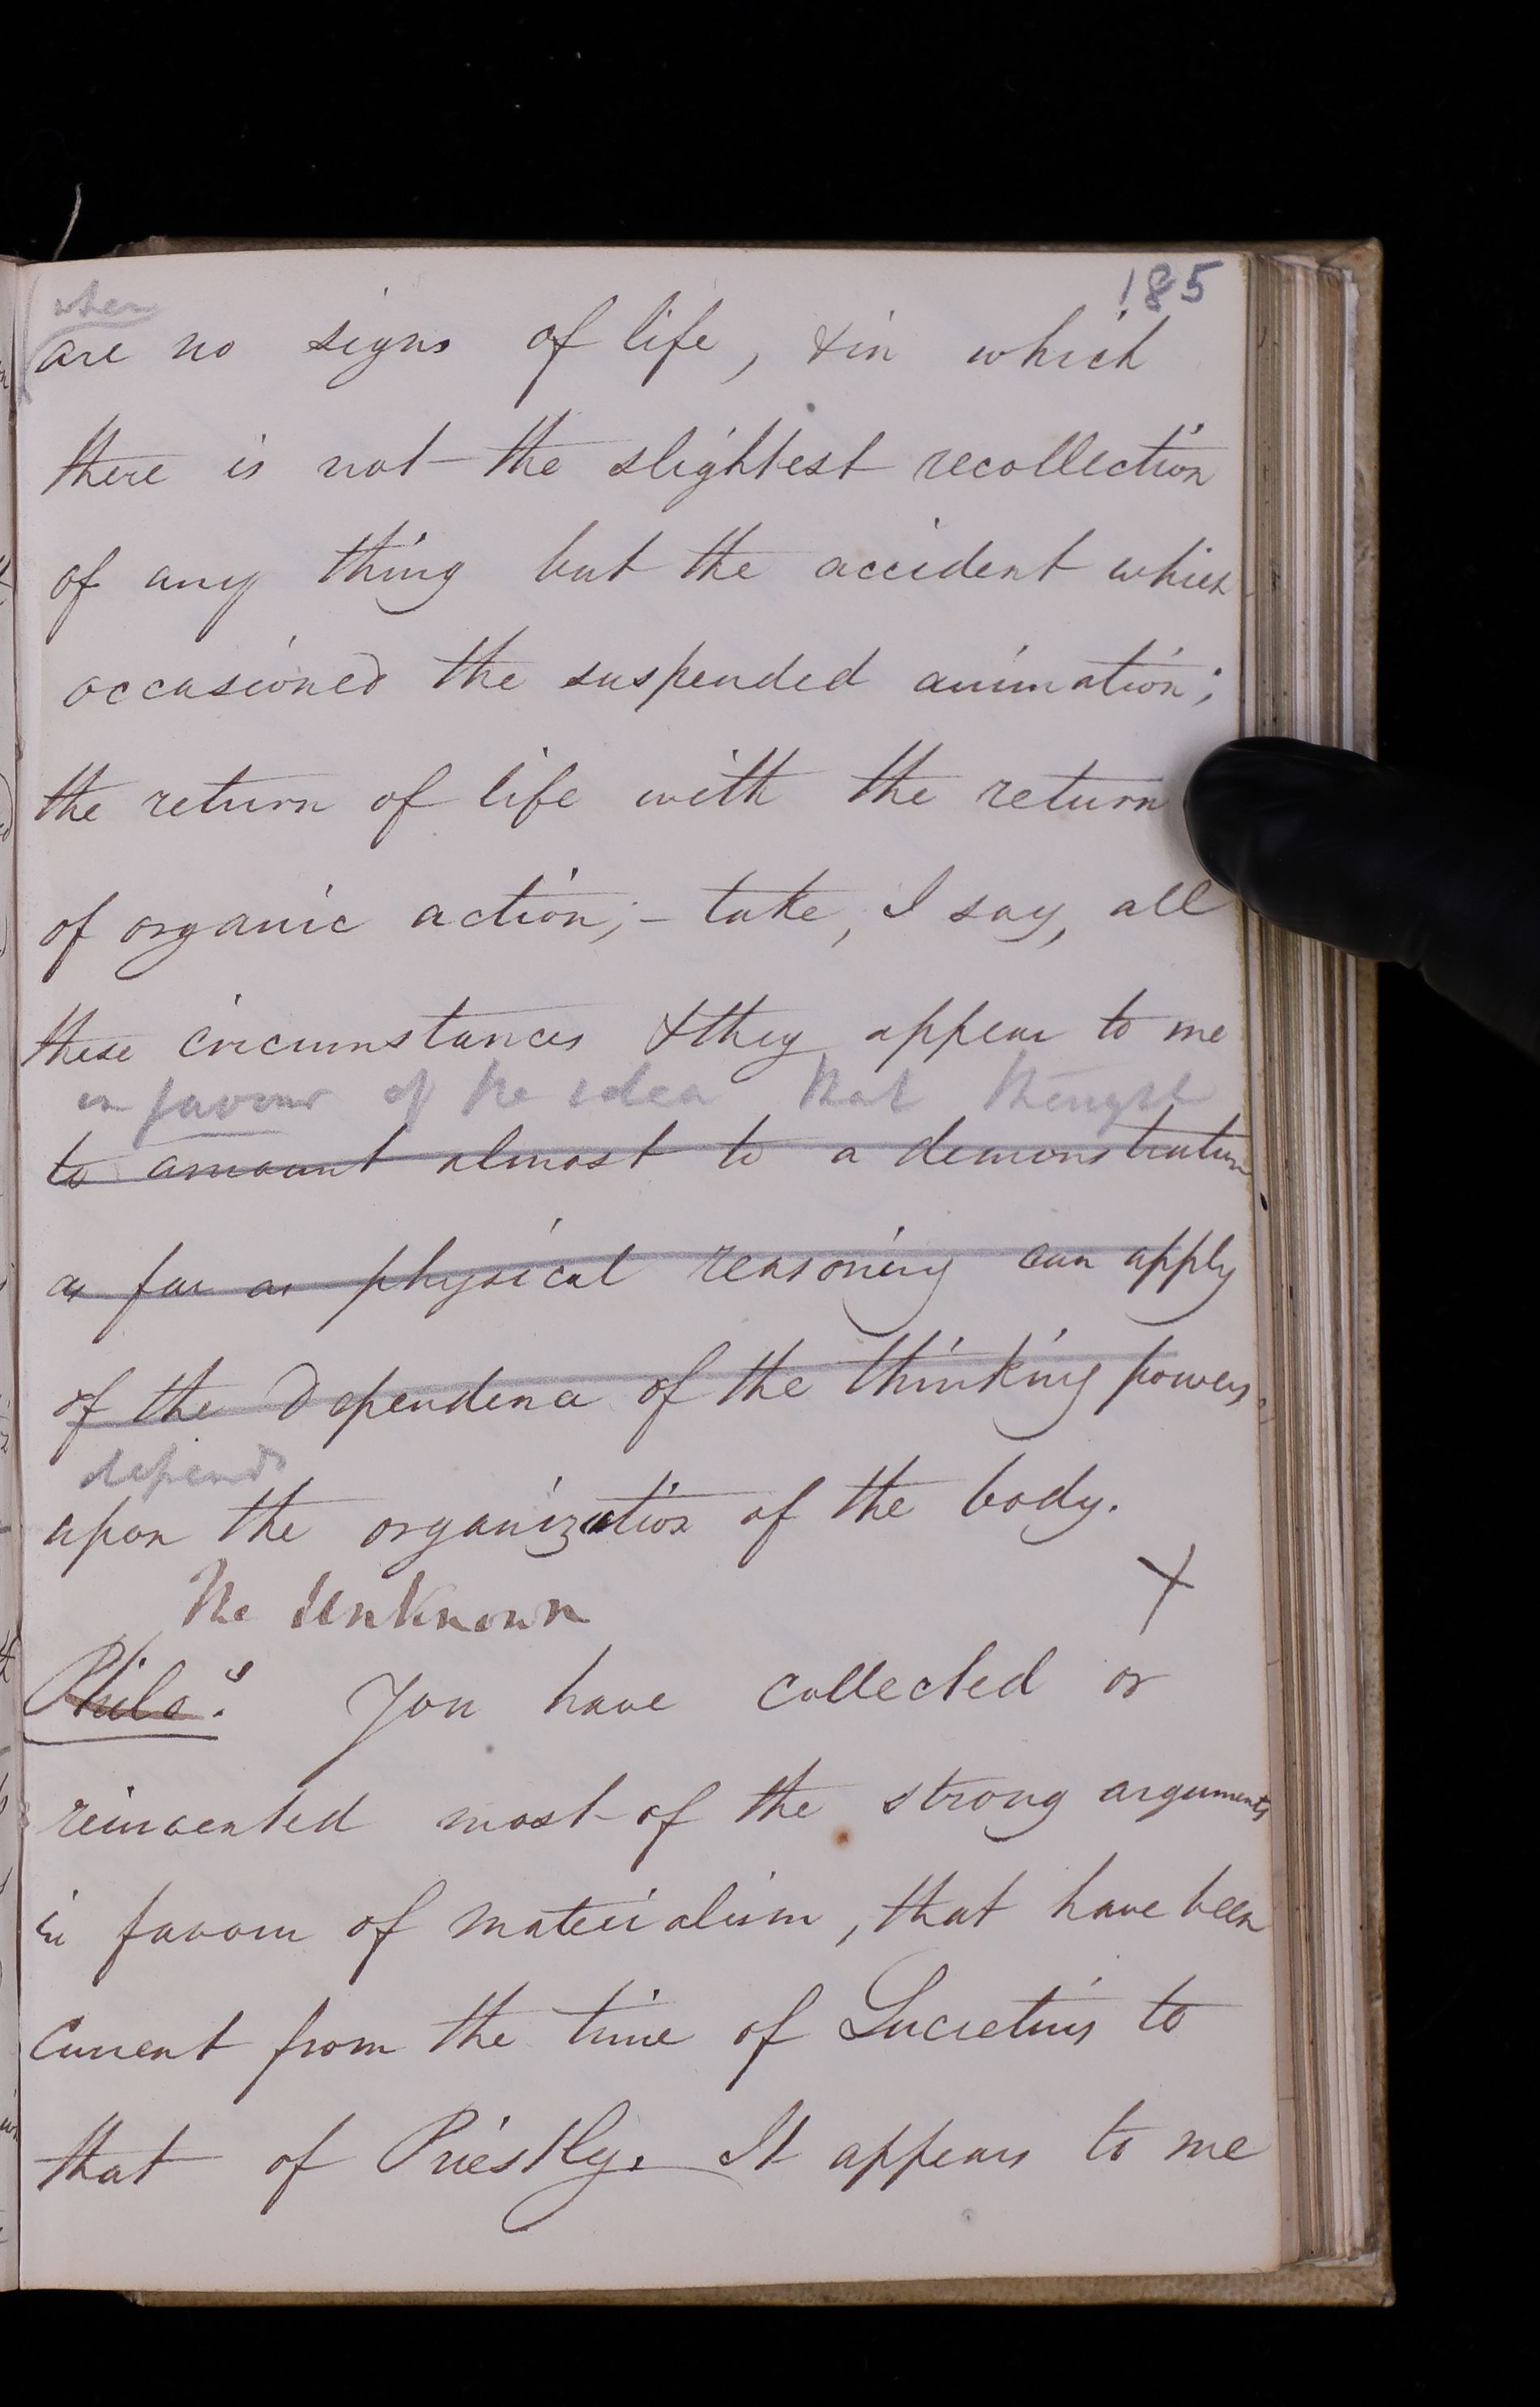 185
when
are no signs of life, & in which
there is not the slightest recollection
of any thing but the accident which
occasioned the suspended animation;
the return of life with the return
of organic action; – take, I say, all
these circumstances & they appear to me
in favour of the idea that thought
to amount almost to a demonstration
as far as physical reasoning can apply
of the dependence of the thinking powers
depends
upon the organization of the body.
The Unknown
Philo.s You have collected or
reinvented most of the strong arguments
in favour of materialism, that have been
current from the time of Lucretius to
that of Priestly. It appears to me